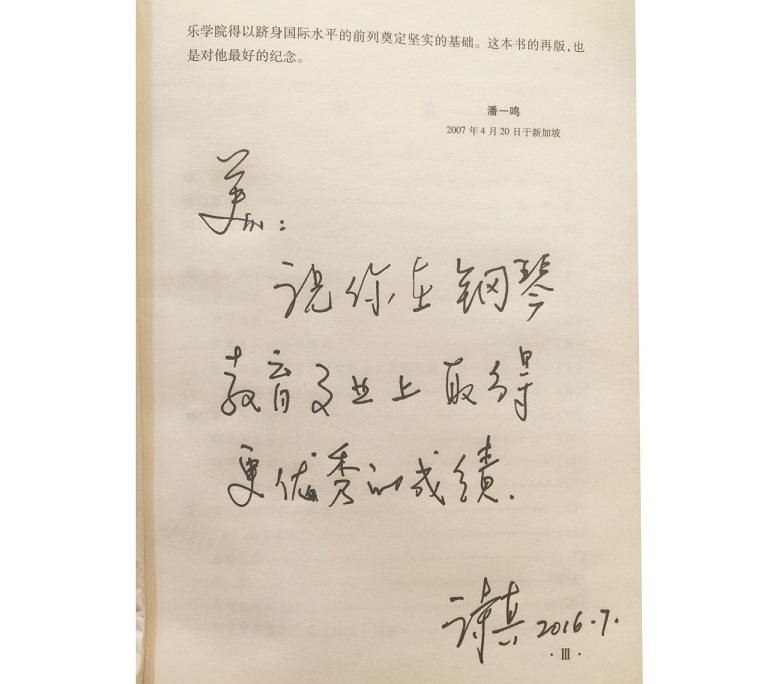 乐学院得以跻身国际水平的前列奠定坚实的基础。这本书的再版,也
是对他最好的纪念。
潘一鸣
2007 年 4 月 20 日于新加坡
美:
祝你在钢琴
教育事业上取得
更优秀的成绩.
2016.7.
· Ⅲ ·